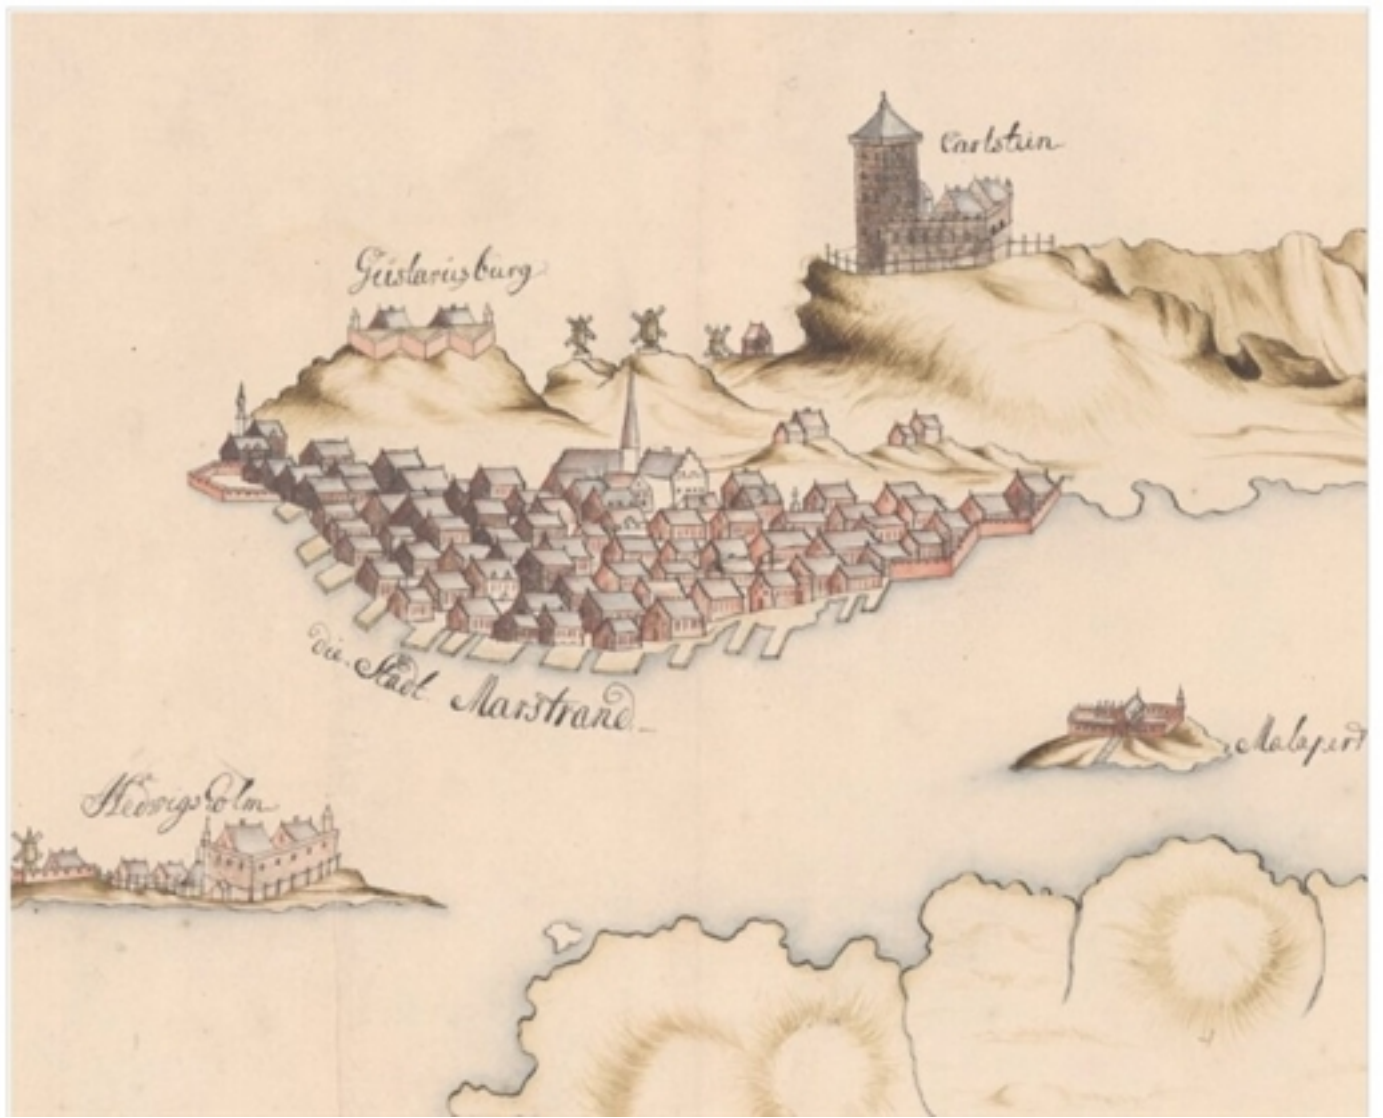 Carlstein
Gustavusburg
die Stadt Marstrand
Malapert
Hedvigsholm